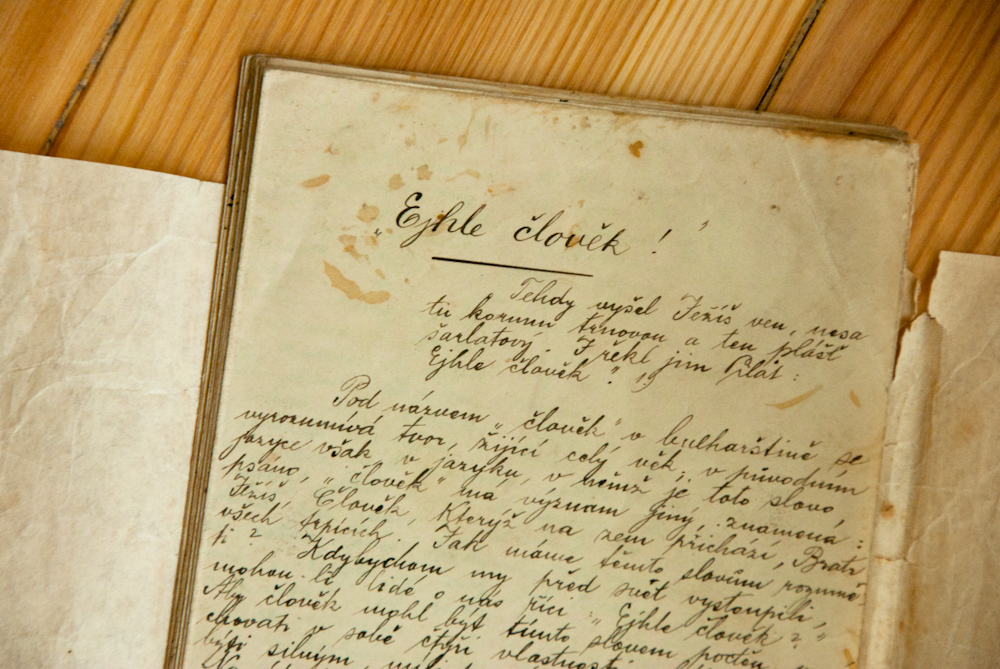 „Ejhle člověk!"
„Tehdy vyšel Ježíš ven, nesa
tu korunu trnovou a ten plášť
šarlatový. I řekl jim Pilát:
Ejhle člověk."
Pod názvem „člověk" v bulharštině se
vyrozumívá tvor, žijící celý věk; v původním
jazyce však v jazyku, v němž je toto slovo
psáno, „člověk" má význam jiný, znamená:
Ježíš, Člověk, Kterýž na zem přichází, Bratr
všech trpících. Jak máme těmto slovům rozumě-
ti? Kdybychom my před svět vystoupili,
mohou-li lidé o nás říci: „Ejhle člověk?"
Aby člověk mohl být tímto slovem poctěn,
chovati v sobě čtyři vlastnosti
býti silným,